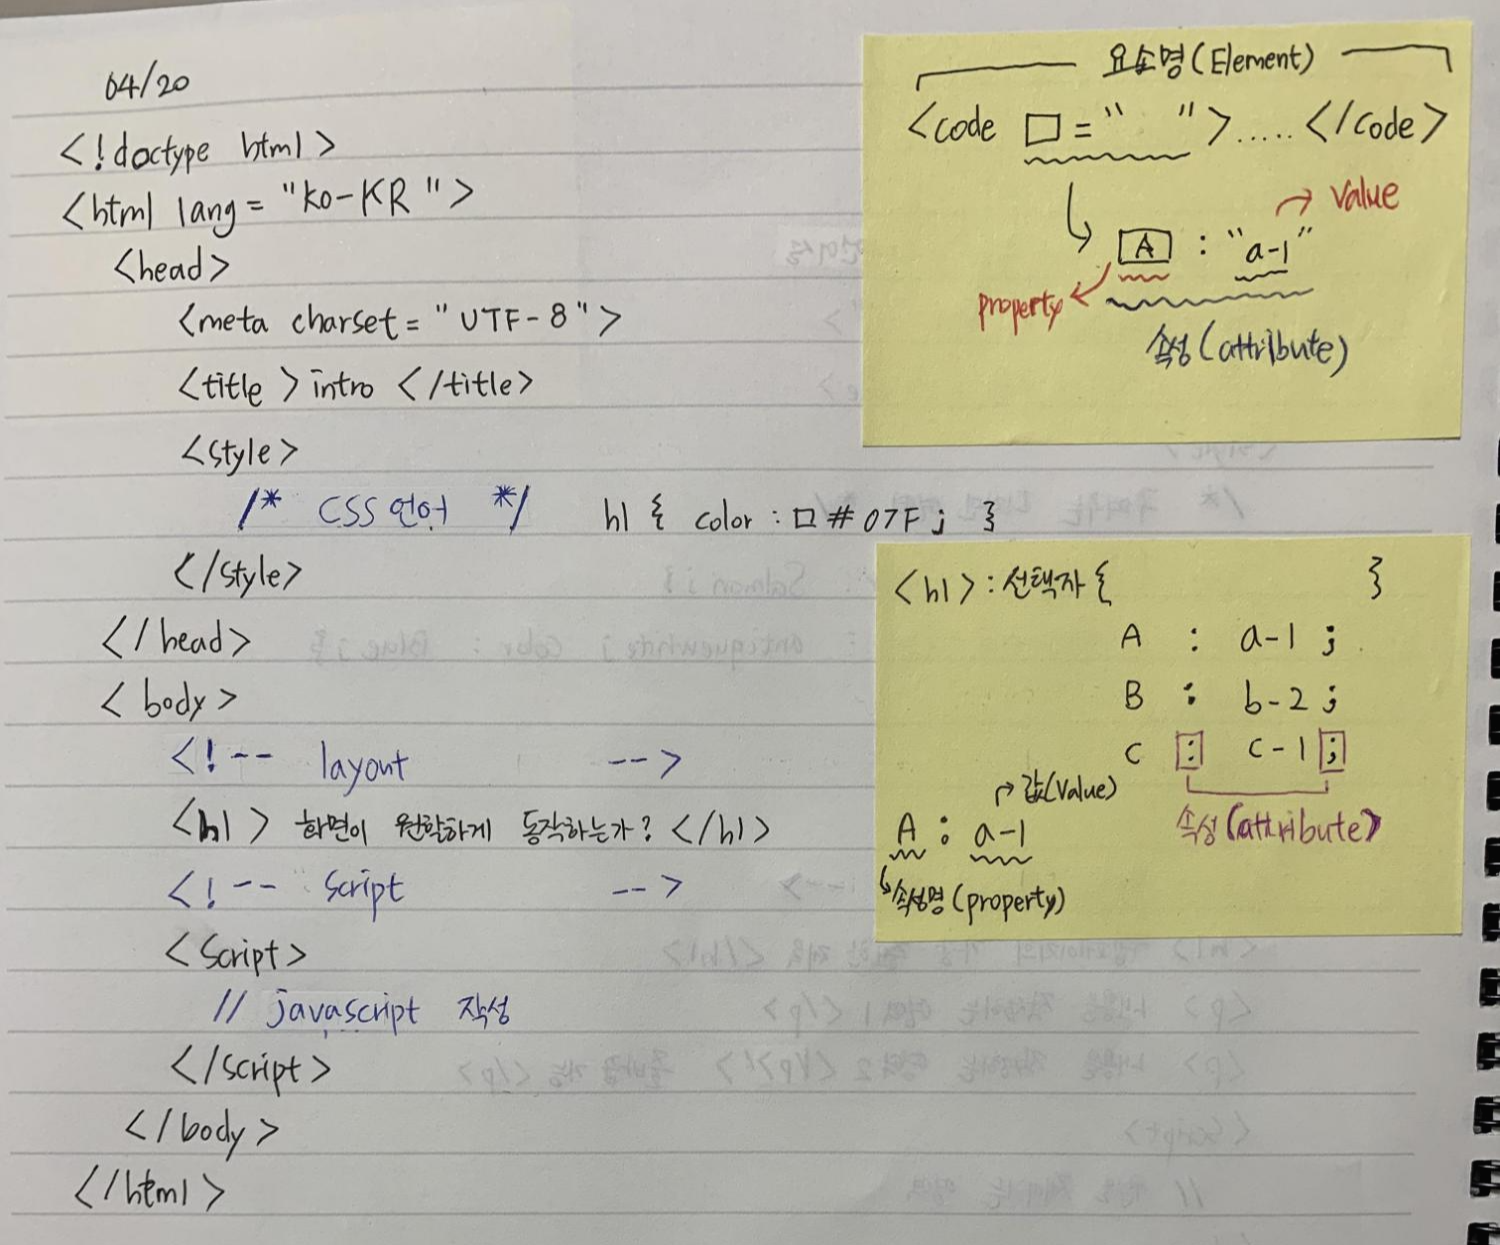 04/20
<!doctype html>
<html lang = "ko-KR">
<head>
<meta charset = "UTF-8">
<title> intro </title>
<style>
/* CSS 언어 */ h1 { color : □ #07F ; }
</style>
</head>
<body>
<!-- layout -->
<h1> 화면이 원학하게 동작하는가? </h1>
<!-- script -->
<script>
// javascript 작성
</script>
</body>
</html>
요소명(Element)
<code □ = " " > ..... </code>
value
A : "a-1"
property
속성(attribute)
<h1> : 선택자 { }
A : a-1 ;
B : b-2 ;
C : c-1 ;
값(value)
A : a-1
속성(attribute)
속성명(property)